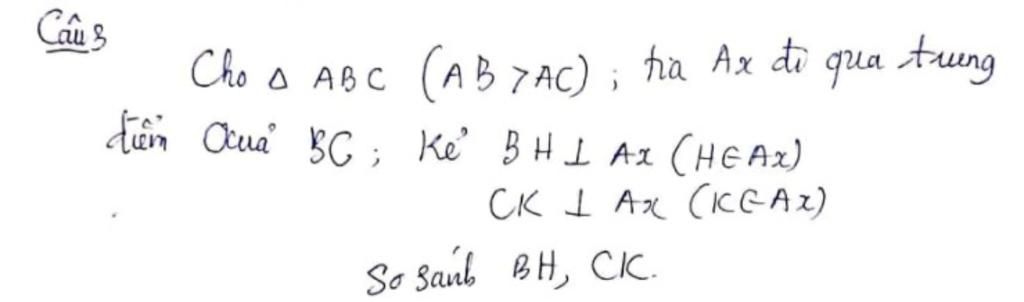 Câu 3
Cho Δ ABC (AB > AC) ; tia Ax đi qua trung
điểm O của BC ; Kẻ BH ⊥ Ax (H ∈ Ax)
CK ⊥ Ax (K ∈ Ax)
So sánh BH, CK.